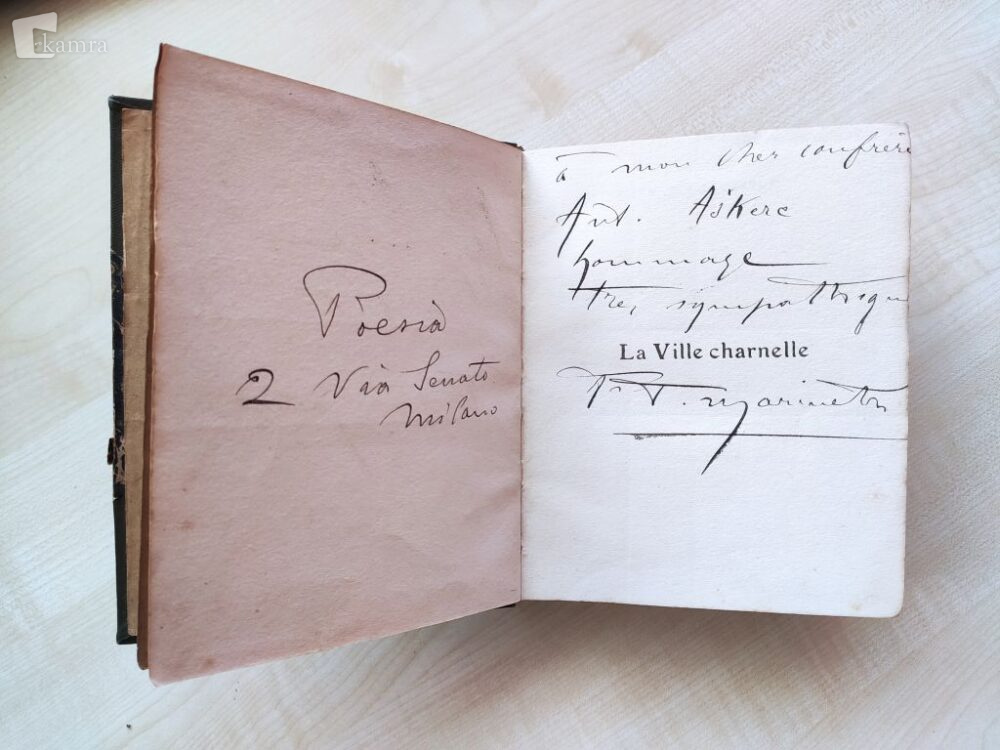 kamra
Poesia
2 Via Senato
Milano
à mon cher confrère
Ant. Aškerc
hommage
très sympathique
La Ville charnelle
F. T. Marinetti